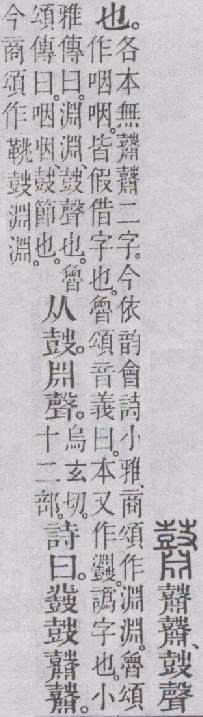 鼘鼘、鼓聲
也。各本無鼘鼘二字。今依韵會詩小雅、商頌作淵淵。魯頌
作咽咽。皆假借字也。魯頌音義曰。本又作鼝。譌字也。小
雅傳曰。淵淵、鼓聲也。魯
頌傳曰。咽咽鼓節也。从鼓。𣶒聲。烏玄切。十二部。詩曰。鼗鼓鼘鼘。今
商頌作鞉鼓淵淵。